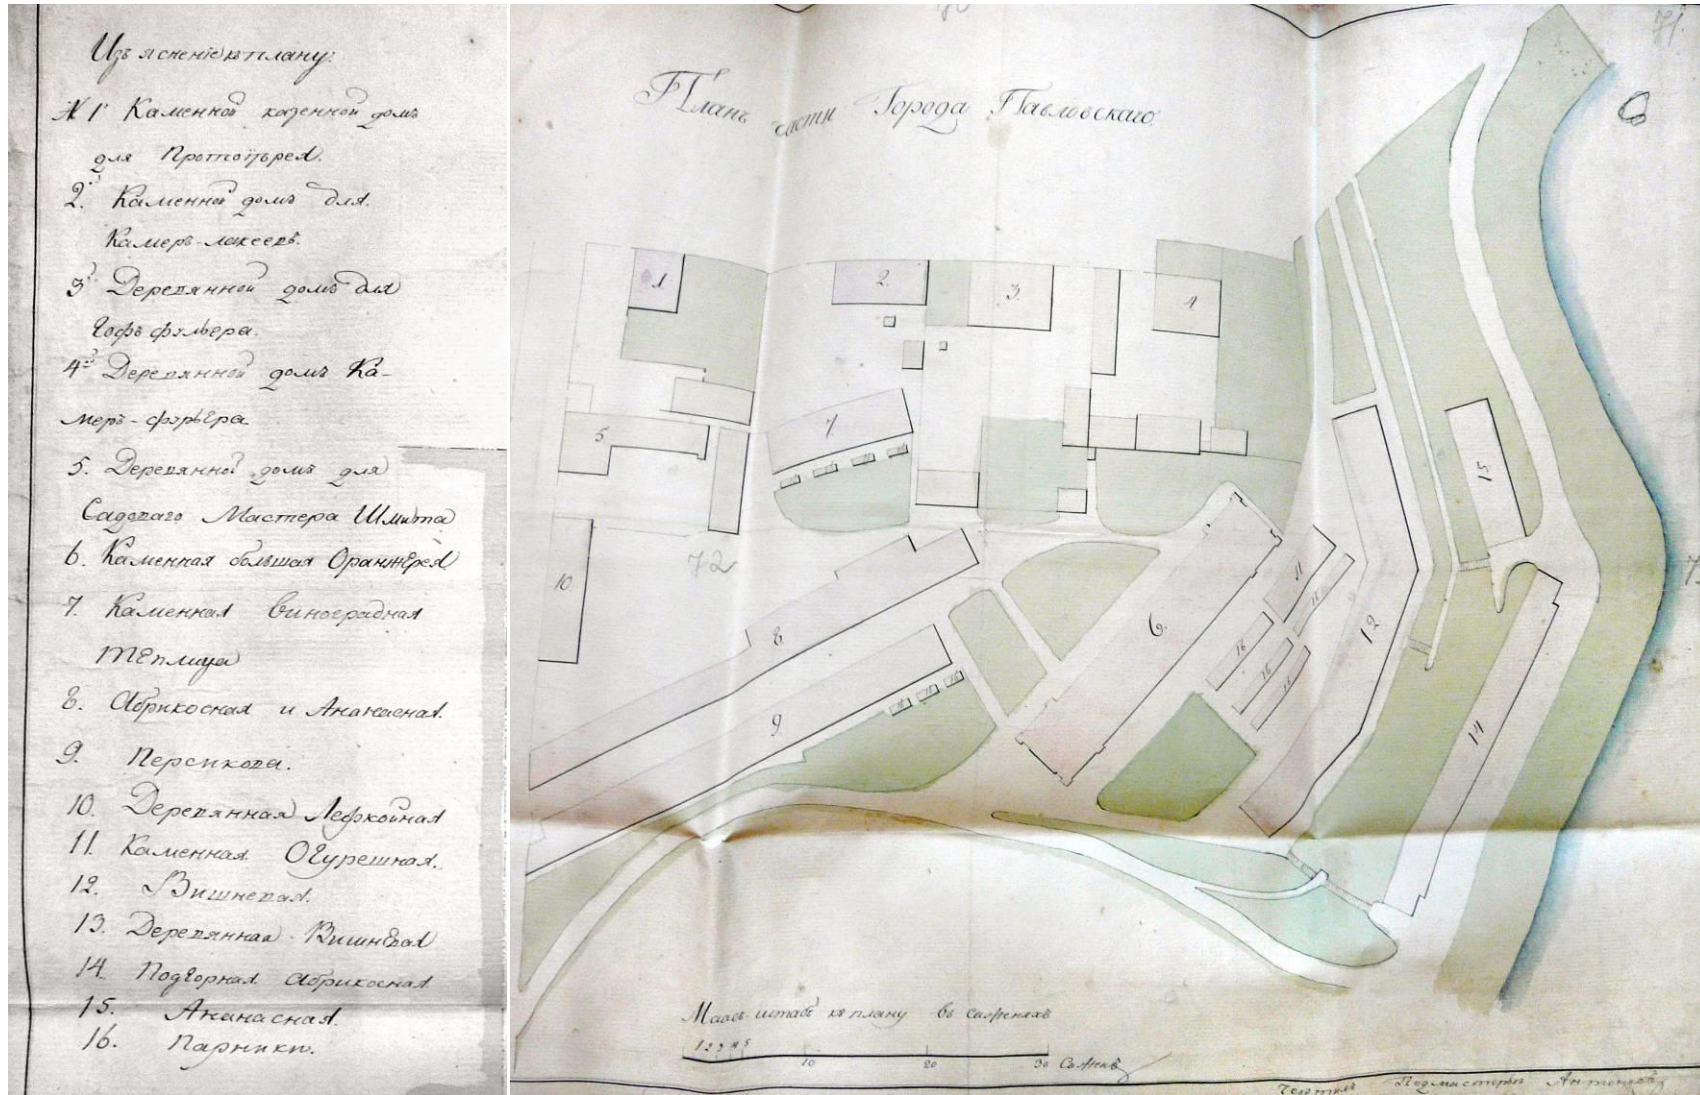 Изъясненіе к плану:
№ 1 Каменной казенной домъ
для Протоіерея.
2. Каменной домъ для
Камеръ-лакеевъ.
3. Деревянной домъ для
Гофъ фурьера.
4. Деревянной домъ Ка-
меръ-фурьера.
5. Деревянной домъ для
Садоваго Мастера Шмита
6. Каменная большая Оранжерея
7. Каменная виноградная
теплица
8. Абрикосная и Ананасная.
9. Персикова.
10. Деревянная Левкойная
11. Каменная Огурешная.
12. Вишневая.
13. Деревянная Вишневая
14. Подгорная абрикосная
15. Ананасная.
16. Парники.
Планъ части Города Павловскаго.
71.
1
2.
3.
4
5
7
10
72
8
9
6.
11
11
12
15
16
16
14
Маасъ-штабъ къ плану въ саженяхъ
1 2 3 4 5
10
20
30 Саженъ
Чертилъ Подмастерье